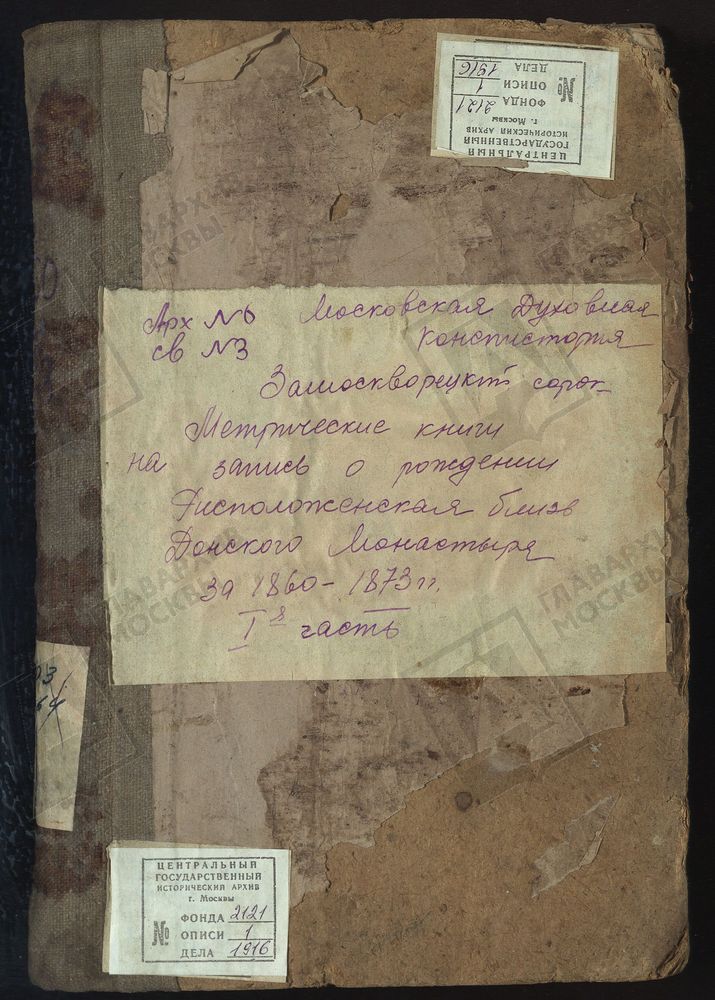 ЦЕНТРАЛЬНЫЙ
ГОСУДАРСТВЕННЫЙ
ИСТОРИЧЕСКИЙ АРХИВ
г. Москвы
ФОНДА 2121
№ ОПИСИ 1
ДЕЛА 1916
Арх №6 Московская Духовная
св №3 Консистория
Замоскворецкий сорок
Метрические книги
на запись о рождении
Рисположенская близь
Донского Монастыря
за 1860-1873 гг.
I я часть
ЦЕНТРАЛЬНЫЙ
ГОСУДАРСТВЕННЫЙ
ИСТОРИЧЕСКИЙ АРХИВ
г. Москвы
ФОНДА 2121
№ ОПИСИ 1
ДЕЛА 1916
ГЛАВАРХИВ
МОСКВЫ
ГЛАВАРХИВ
МОСКВЫ
ГЛАВАРХИВ
МОСКВЫ
ГЛАВАРХИВ
МОСКВЫ